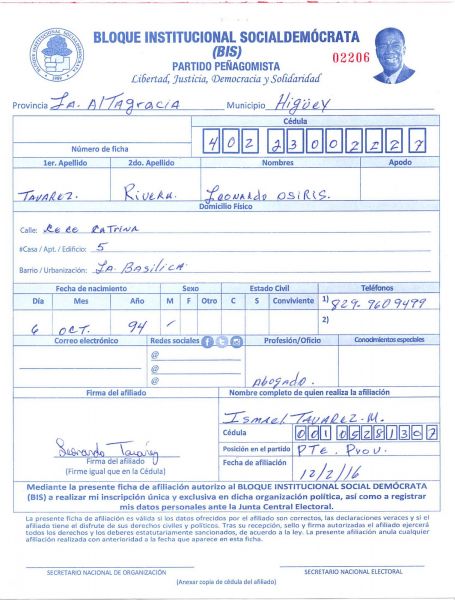 BLOQUE INSTITUCIONAL SOCIALDEMÓCRATA
(BIS)
PARTIDO PEÑAGOMISTA
Libertad, Justicia, Democracia y Solidaridad
02206
Provincia La Altagracia Municipio Higüey
Cédula
Número de ficha 402 2300212 7
1er. Apellido 2do. Apellido Nombres Apodo
Tavarez. Rivera Leonardo Osiris.
Domicilio Físico
Calle:
#Casa / Apt. / Edificio: 5
Barrio / Urbanización: La Basilica
Fecha de nacimiento Sexo Estado Civil Teléfonos
Día Mes Año M F Otro C S Conviviente 1) 829-960 9499
2)
6 Oct. 94 ✓
Correo electrónico Redes sociales Profesión/Oficio Conocimientos especiales
@
@
@
Abogado.
Firma del afiliado Nombre completo de quien realiza la afiliación
Ismael Tavarez M.
Cédula 001 0528130 7
Leonardo Tavárez
Posición en el partido Pte. Prov.
Firma del afiliado
(Firme igual que en la Cédula)
Fecha de afiliación 12/2/16
Mediante la presente ficha de afiliación autorizo al BLOQUE INSTITUCIONAL SOCIAL DEMÓCRATA
(BIS) a realizar mi inscripción única y exclusiva en dicha organización política, así como a registrar
mis datos personales ante la Junta Central Electoral.
La presente ficha de afiliación es válida si los datos ofrecidos por el afiliado son correctos, las declaraciones veraces y si el
afiliado tiene el disfrute de sus derechos civiles y políticos. Tras su recepción, sello y firma autorizadas el afiliado ejercerá
todos los derechos y los deberes estatutariamente sancionados, de acuerdo a la ley. La presente afiliación anula cualquier
afiliación realizada con anterioridad a la fecha que aparece en esta ficha.
SECRETARIO NACIONAL DE ORGANIZACIÓN SECRETARIO NACIONAL ELECTORAL
(Anexar copia de cédula del afiliado)